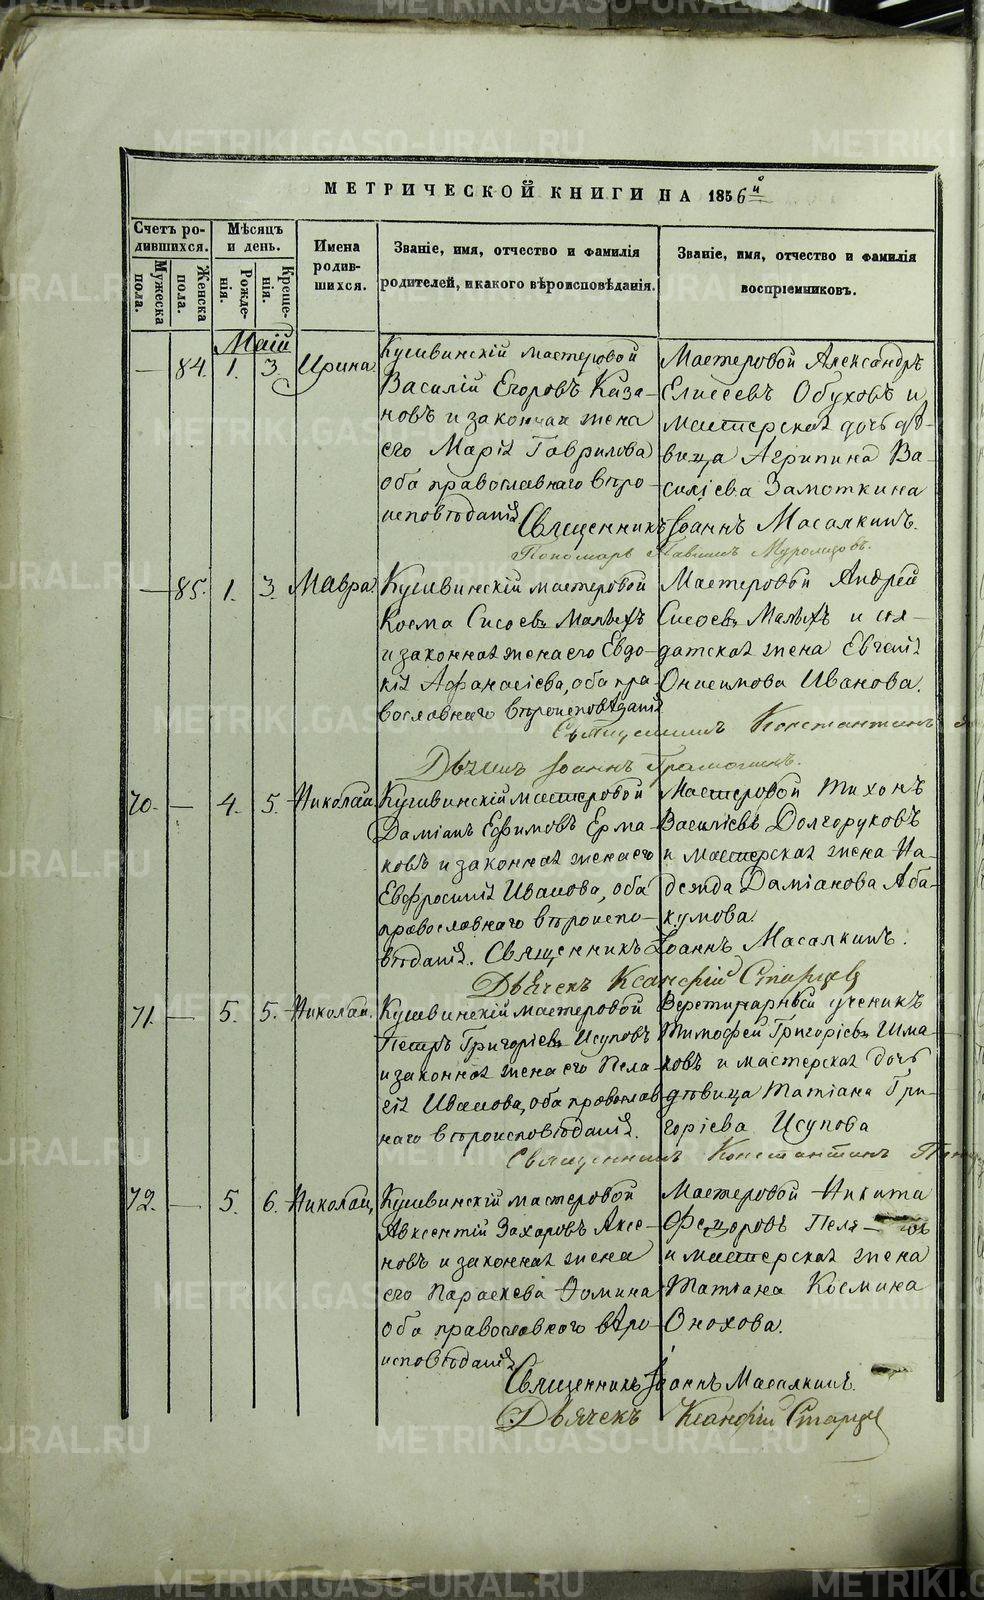 МЕТРИЧЕСКОЙ КНИГИ НА 1856й
Счетъ ро-
дившихся.
Мужеска
пола.
Женска
пола.
Мѣсяцъ
и день.
Рожде-
нія.
Креще-
нія.
Имена
родив-
шихся.
Званіе, имя, отчество и фамилія
родителей, и какого вѣроисповѣданія.
Званіе, имя, отчество и фамилія
воспріемниковъ.
Маій
— 84. 1. 3. Ирина
Кушвинскій мастеровой
Василій Егоровъ Каза-
новъ и законная жена
его Марія Гаврилова
оба православнаго вѣро-
исповѣданія
Мастеровой Александръ
Елисеевъ Обуховъ и
мастерская дочь дѣ-
вица Агрипина Ва-
силіева Замоткина
Священникъ Іоаннъ Масалкинъ.
Пономарь
— 85. 1. 3. Мавра.
Кушвинскій мастеровой
Косма Сисоевъ Малыхъ
и законная жена его Евдо-
кія Афанасіева, оба пра-
вославнаго вѣроисповѣданія
Мастеровой Андрей
Сисоевъ Малыхъ и сол-
датская жена Евгенія
Онисимова Иванова.
Священникъ Константинъ
Дьячекъ Іоаннъ
70. — 4. 5. Николай.
Кушвинскій мастеровой
Даміанъ Ефимовъ Ерма-
ковъ и законная жена его
Евфросинія Иванова, оба
православнаго вѣроиспо-
вѣданія.
Мастеровой Тихонъ
Василіевъ Долгоруковъ
и мастерская жена На-
дежда Даміанова Аба-
кумова.
Священникъ Іоаннъ Масалкинъ.
Дьячекъ Ксанфій Старцев
71. — 5. 5. Николай.
Кушвинскій мастеровой
Петръ Григоріевъ Исуповъ
и законная жена его Пела-
гія Иванова, оба православ
наго вѣроисповѣданія.
Ветеринарный ученикъ
Тимофей Григоріевъ Шма-
ковъ и мастерская дочь
дѣвица Татіана Гри-
горіева Исупова
Священникъ Константинъ
72. — 5. 6. Николай,
Кушвинскій мастеровой
Авксентій Захаровъ Аксе-
новъ и законная жена
его Параскева Фомина
оба православного вѣро-
исповѣданія
Мастеровой Никита
Федоровъ
и мастерская жена
Татіана Космина
Онохова.
Священникъ Іоаннъ Масалкинъ.
Дьячекъ Ксанфій Старце
METRIKI.GASO-URAL.RU